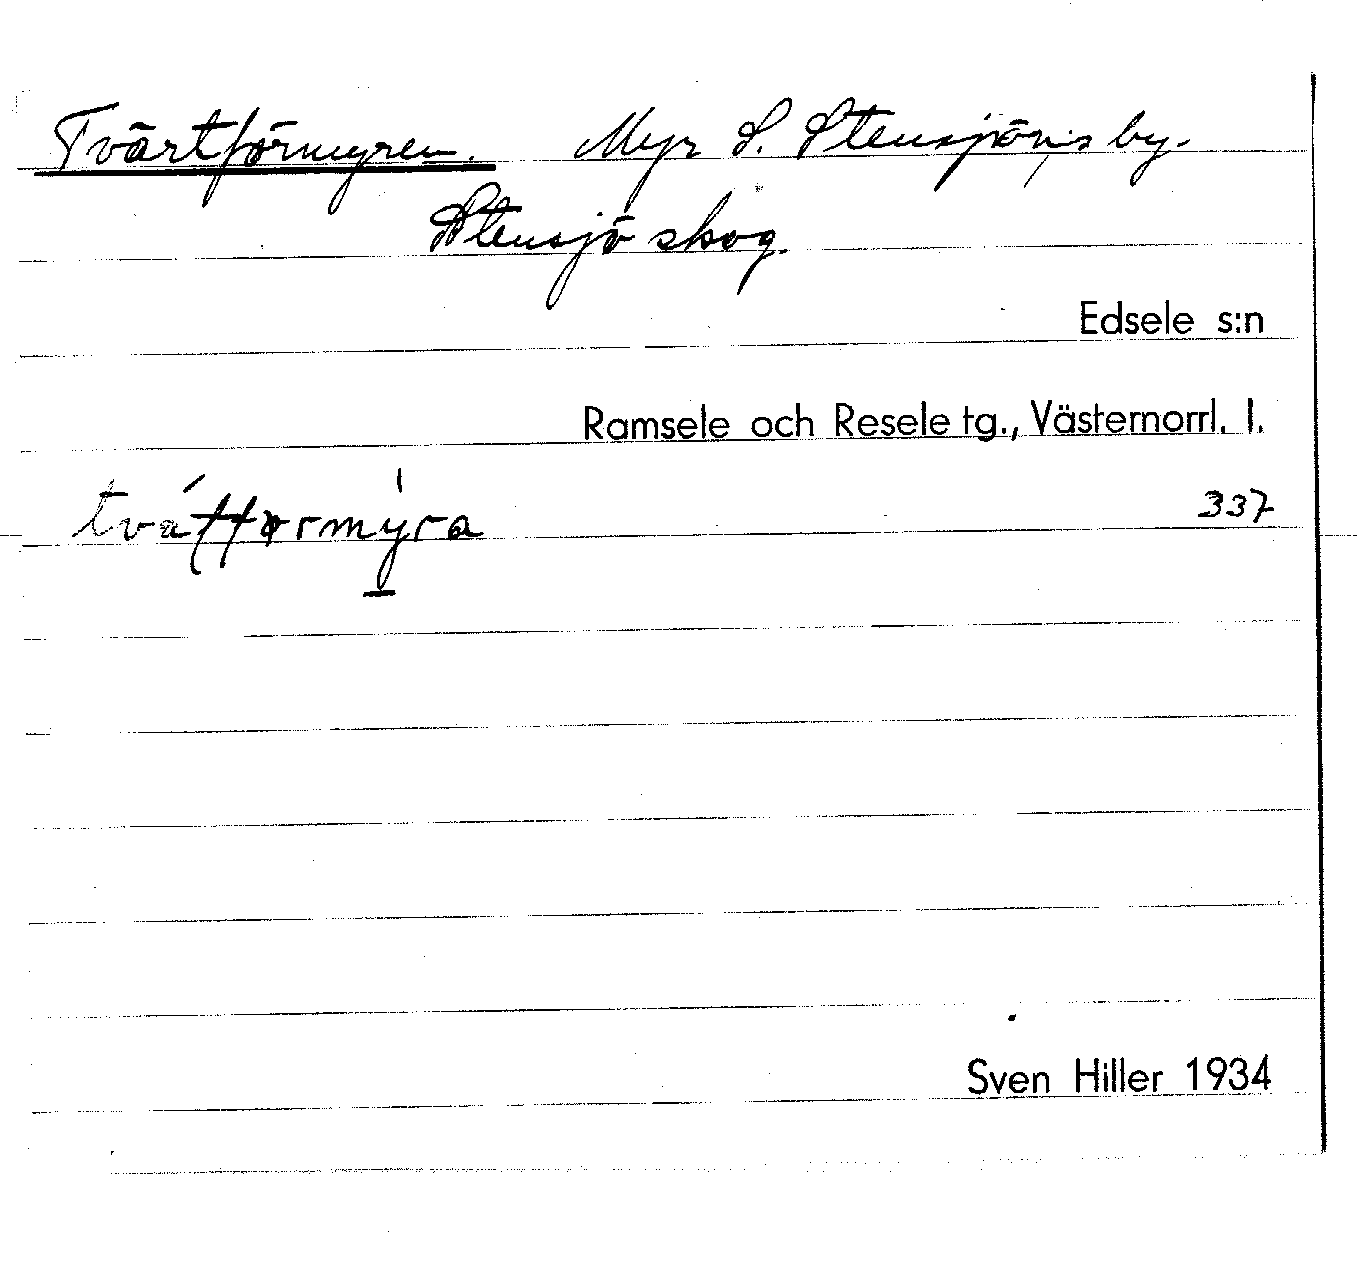 Tvärtförmyren. Myr S. Stensjöns by.
Stensjö skog.
Edsele s:n
Ramsele och Resele tg., Västernorrl. l.
337
Sven Hiller 1934